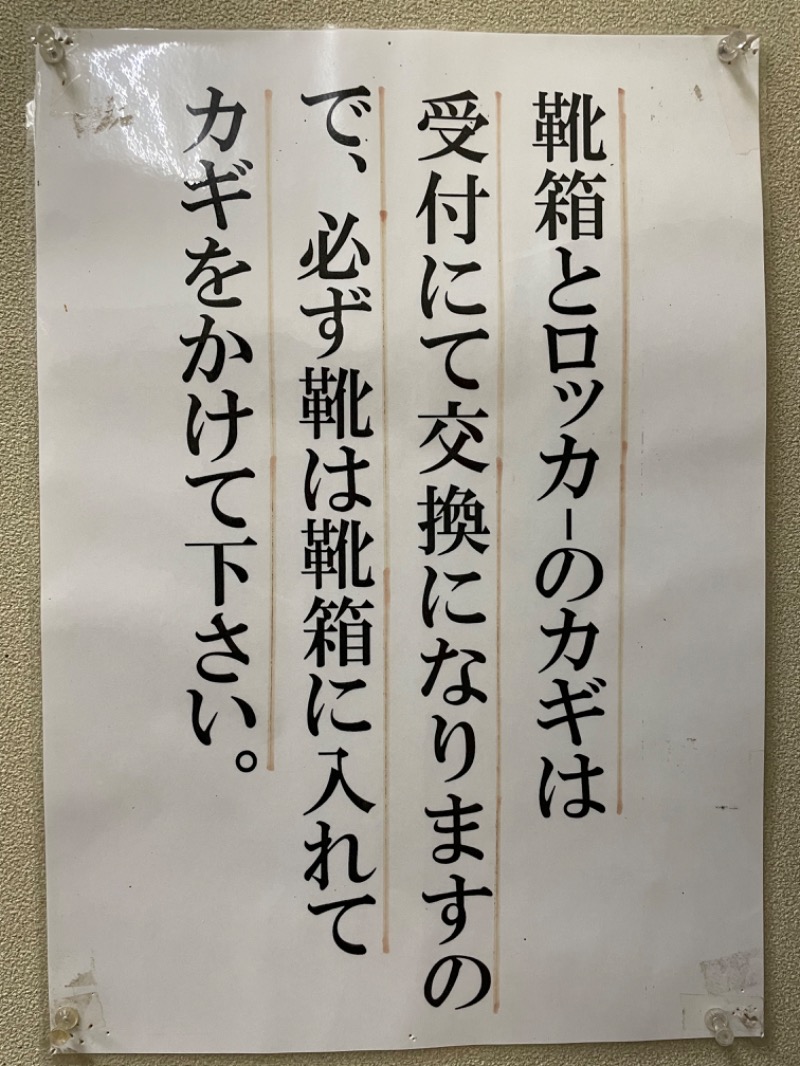 靴箱とロッカーのカギは
受付にて交換になりますの
で、必ず靴は靴箱に入れて
カギをかけて下さい。